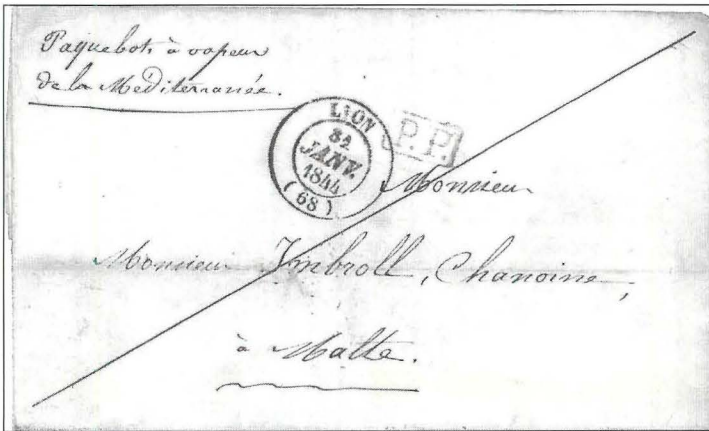 Paquebots à vapeur
de la Méditerranée.
LION
31
JANV.
1844
(68)
P.P.
Monsieur
Monsieur Imbroll, Chanoine,
à Malte.